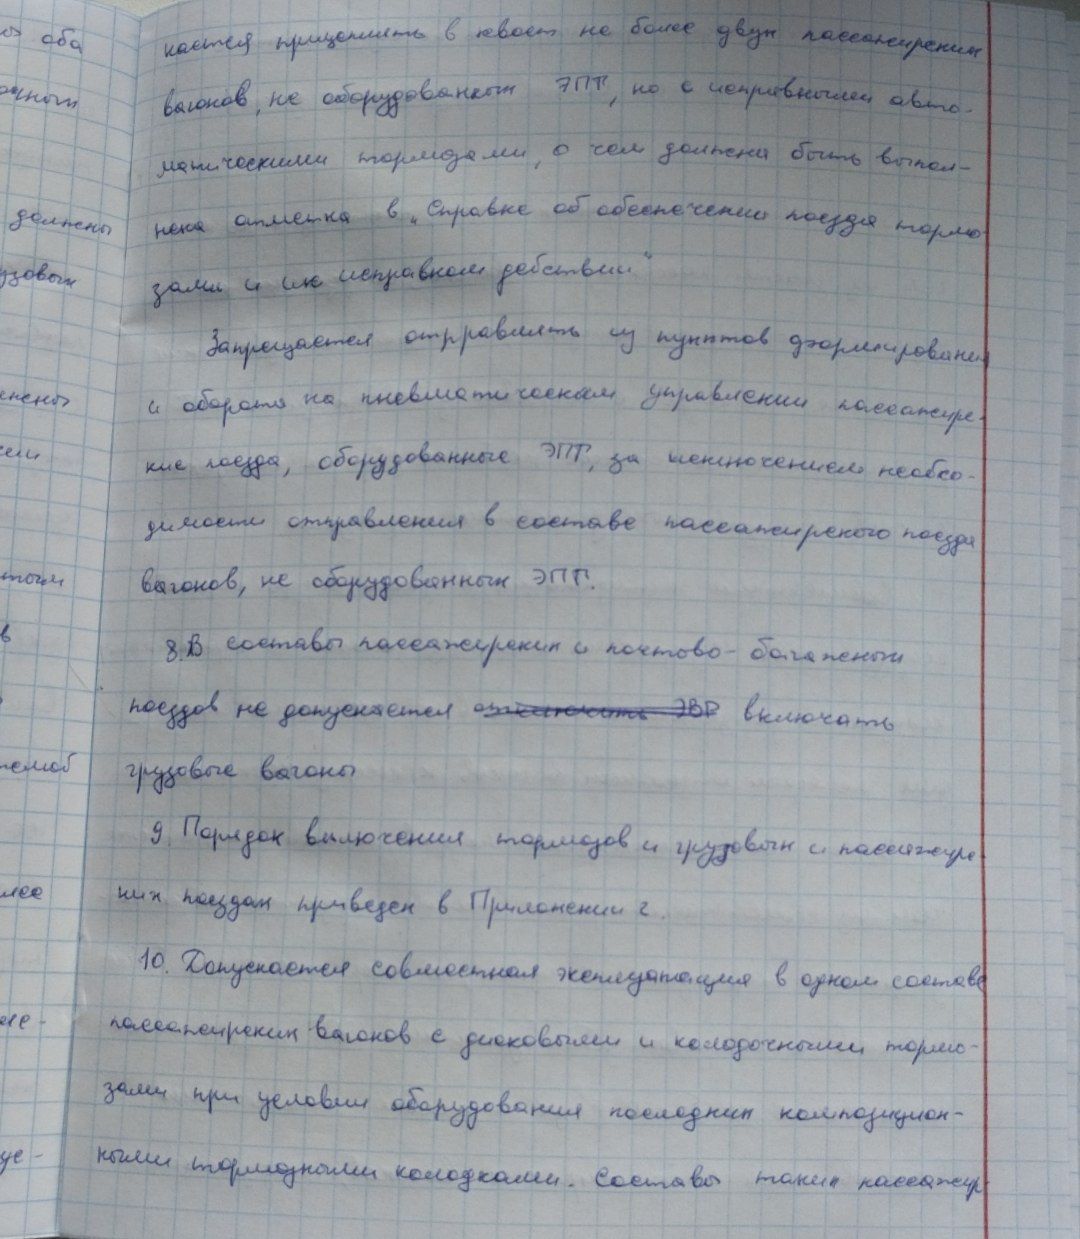 кается прицеплять в хвост не более двух пассажирских
вагонов, не оборудованных ЭПТ, но с исправными авто-
матическими тормозами, о чем должна быть выпол-
нена отметка в „Справке об обеспечении поезда тормо
зами и их исправном действии"
Запрещается отрравлять из пунктов формирования
и оборота на пневматическом управлении пассажирс-
кие поезда, оборудованные ЭПТ, за исключением необхо-
димости отправления в составе пассажирского поезда
вагонов, не оборудованных ЭПТ.
8. В составы пассажирских и почтово-багажных
поездов не допускается включать
грузовые вагоны
9. Порядок включения тормозов и грузовых и пассажирс
ких поездах приведен в Приложении 2.
10. Допускается совместная эксплуатация в одном составе
пассажирских вагонов с дисковыми и колодочными тормо-
зами при условии оборудования последних композицион-
ными тормозными колодками. Составы таких пассажир
оба
должны
узовых